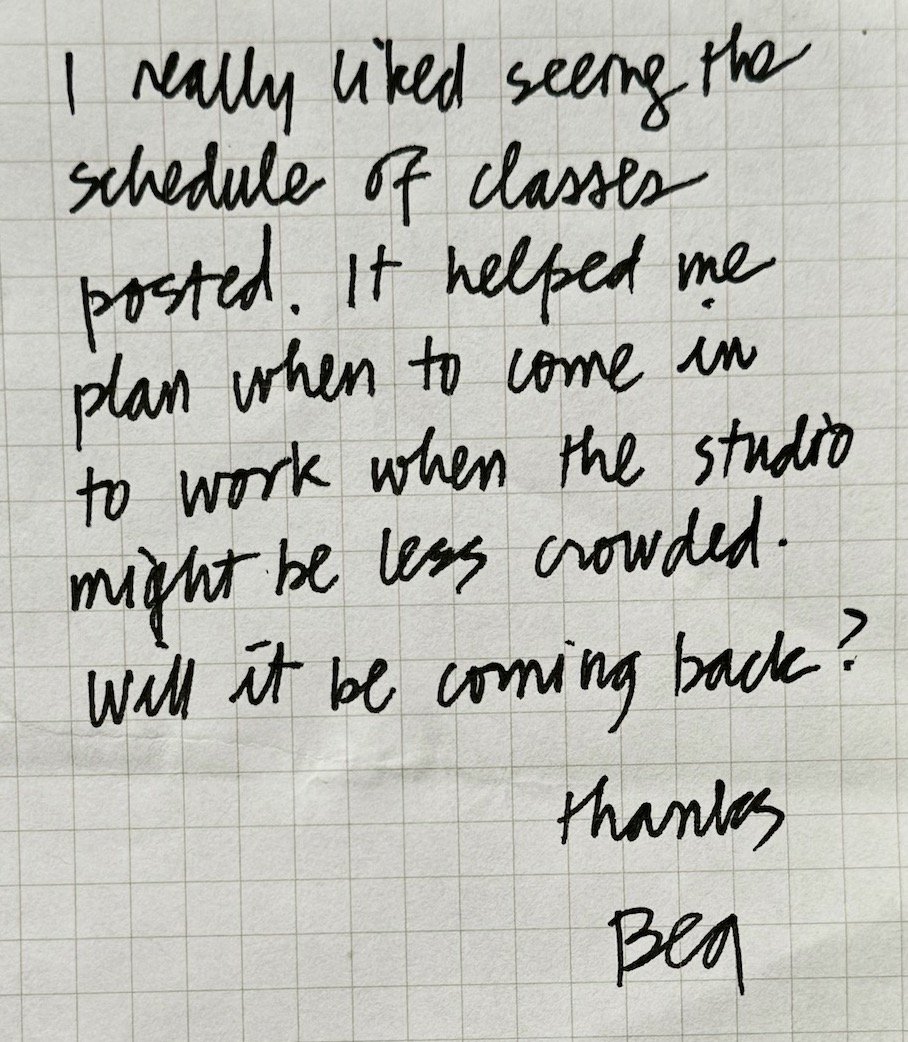 I really liked seeing the
schedule of classes
posted. It helped me
plan when to come in
to work when the studio
might be less crowded.
Will it be coming back?
thanks
Bea